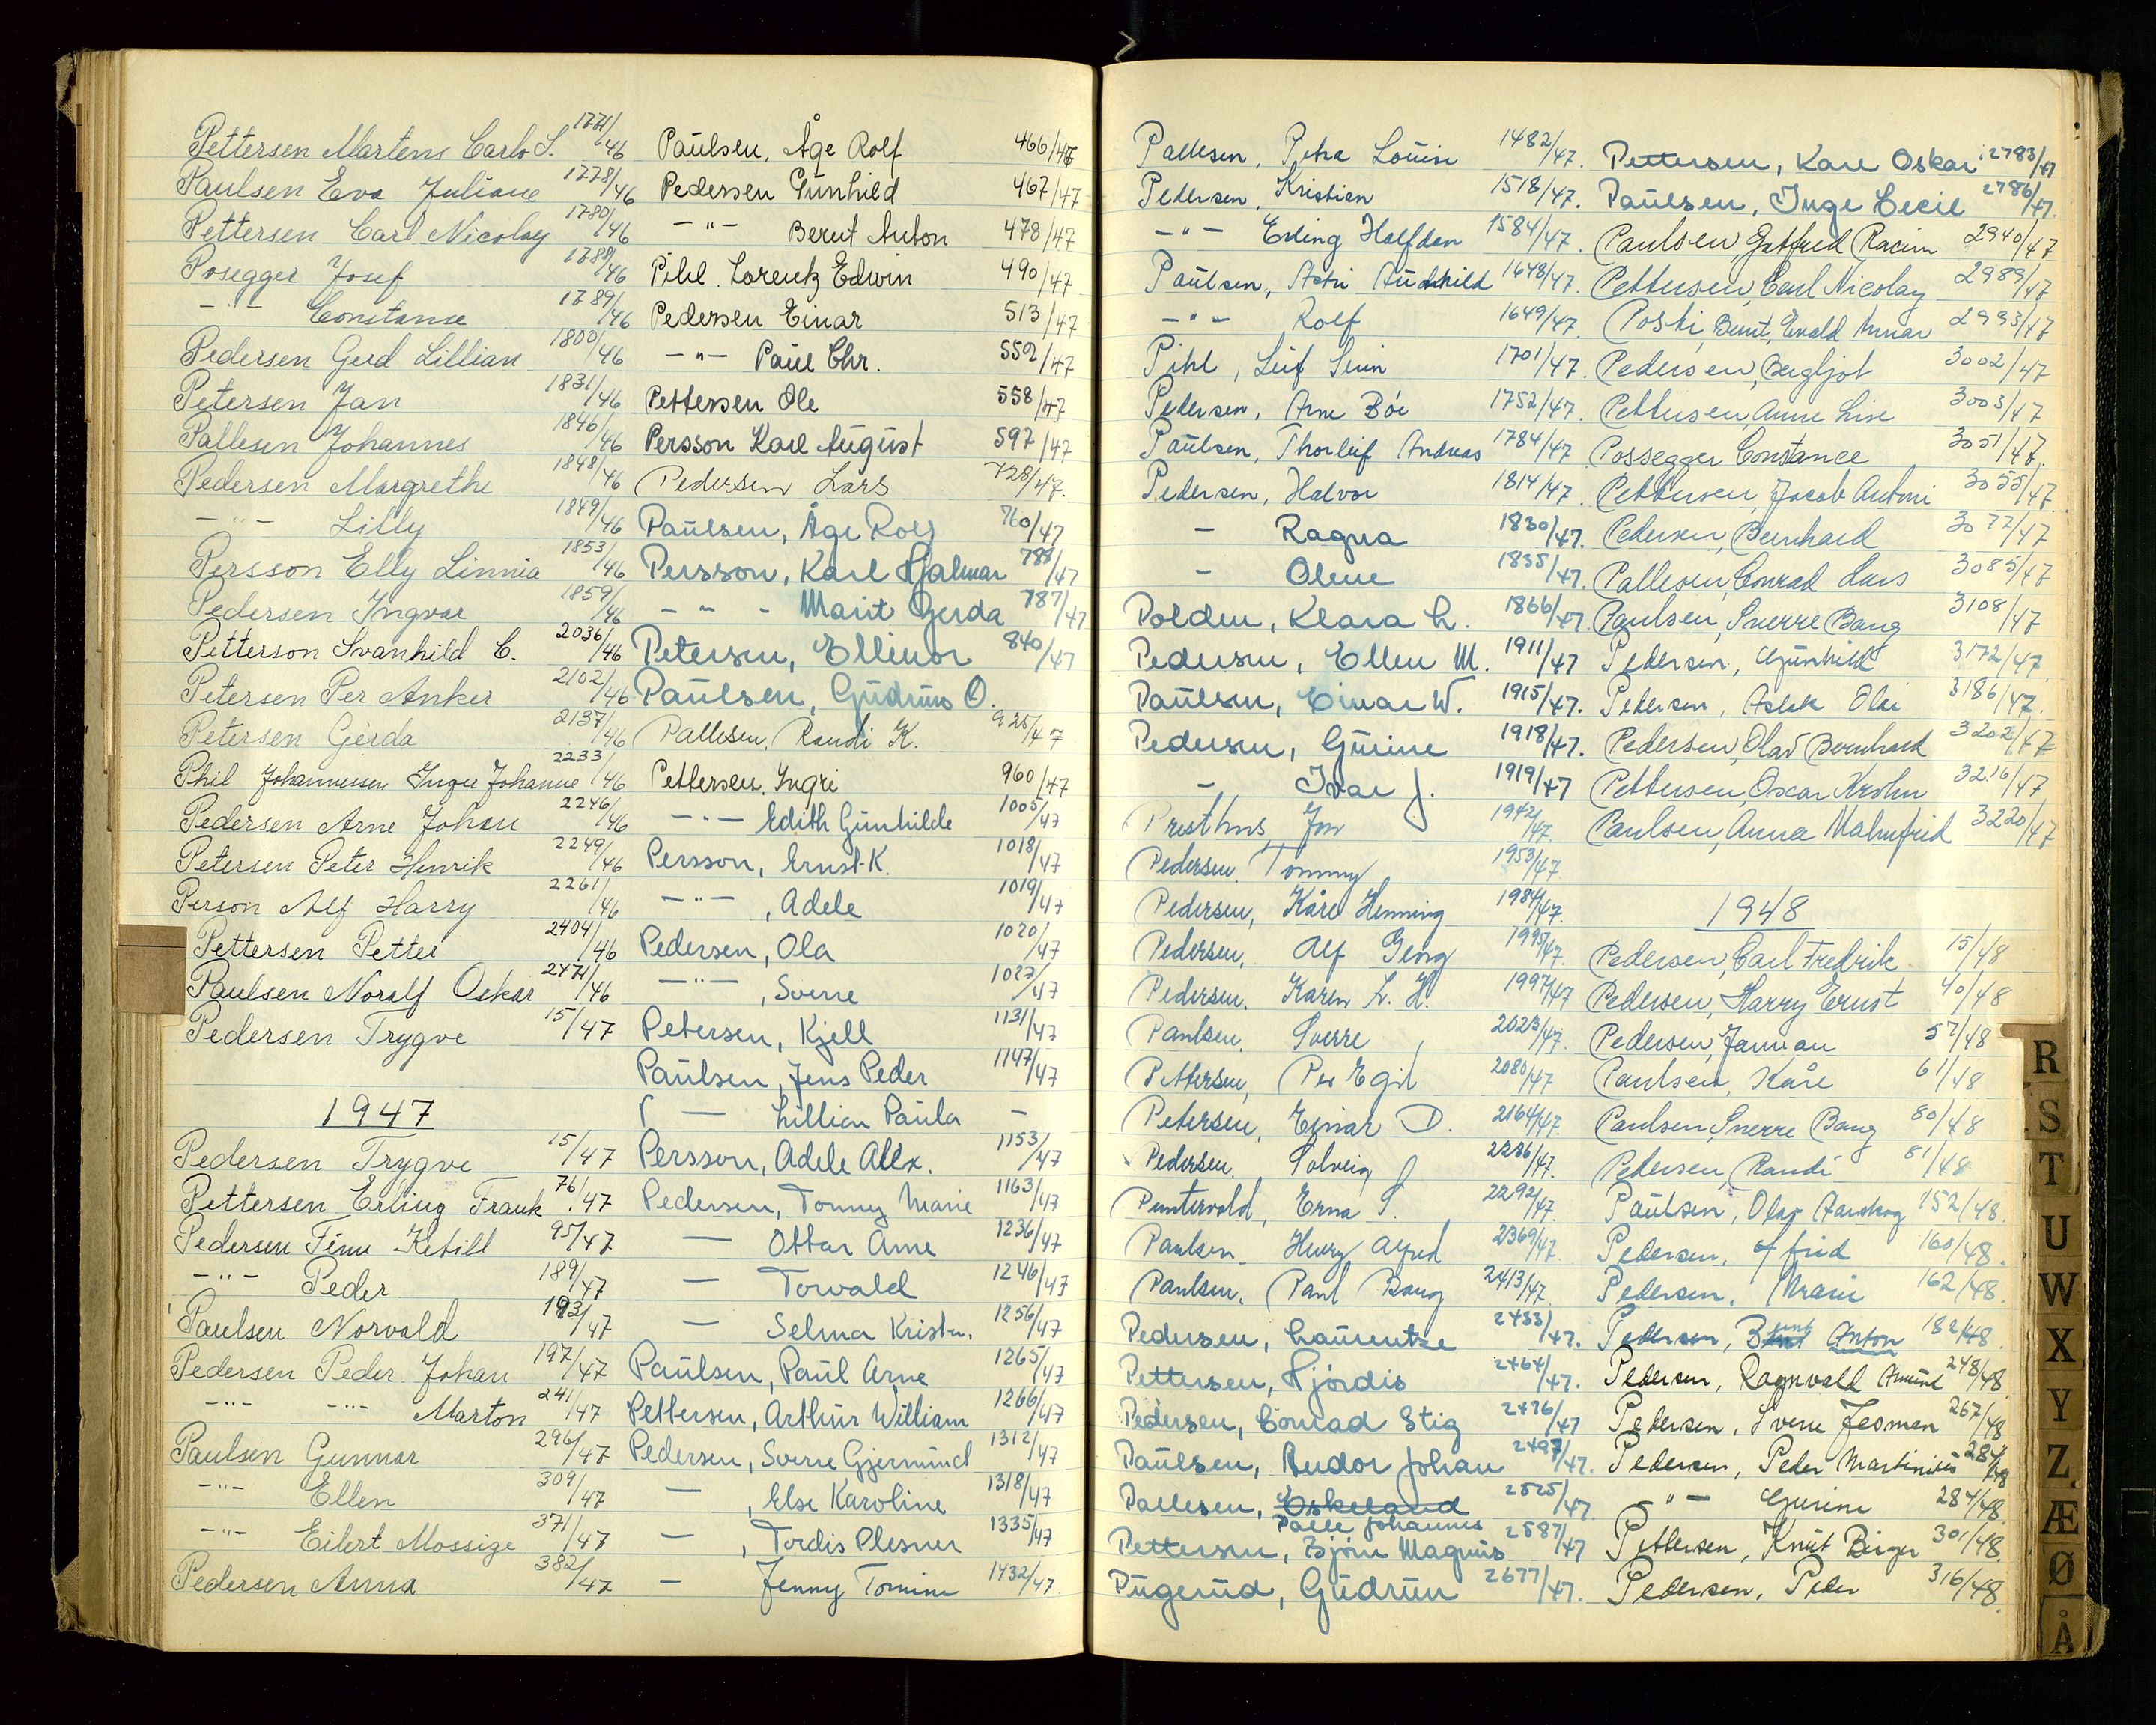 Pettersen Martens Carlo S. 1771/46
Paulsen Eva Juliane 1778/46
Pettersen Carl Nicolay 1780/46
Posegger Josef 1789/46
-"- Constanse 1789/46
Pedersen Gerd Lillian 1800/46
Petersen Jan 1831/46
Pallesen Johannes 1846/46
Pedersen Margrethe 1848/46
-"- Lilly 1849/46
Persson Elly Linnia 1853/46
Pedersen Ingvar 1859/46
Petterson Svanhild C. 2036/46
Petersen Per Anker 2102/46
Petersen Gerda 2137/46
Phil Johannessen Inger Johanne 2233/46
Pedersen Arne Johan 2246/46
Petersen Peter Henrik 2249/46
Person Alf Harry 2261/46
Pettersen Petter 2404/46
Paulsen Noralf Oskar 2471/46
Pedersen Trygve 15/47
1947
Pedersen Trygve 15/47
Pettersen Erling Frank 76/47
Pedersen Finn Ketill 95/47
-"- Peder 189/47
Paulsen Norvald 193/47
Pedersen Peder Johan 197/47
-"- -"- Marton 241/47
Paulsen Gunnar 296/47
-"- Ellen 309/47
-"- Eilert Mossige 371/47
Pedersen Anna 382/47
Paulsen, Åge Rolf 466/47
Pedersen Gunhild 467/47
-"- Bernt Anton 478/47
Pihl. Lorentz Edwin 490/47
Pedersen Einar 513/47
-"- Paul Chr. 552/47
Pettersen Ole 558/47
Persson Karl August 597/47
Pedersen Lars 728/47.
Paulsen, Åge Rolf 760/47
Persson, Karl Hjalmar 788/47
- " - Marit Gerda 787/47
Petersen, Ellinor 840/47
Paulsen, Gudrun O.
Pallesen, Randi K. 925/47
Pettersen, Ingri 960/47
-"- Edith Gunhilde 1005/47
Persson, Ernst K. 1018/47
-"-, Adele 1019/47
Pedersen, Ola 1020/47
-"-, Sverre 1027/47
Petersen, Kjell 1131/47
Paulsen, Jens Peder 1147/47
- Lillian Paula -
Persson, Adele Alex. 1153/47
Pedersen, Tonny Marie 1163/47
- Ottar Arne 1236/47
- Torvald 1246/47
- Selma Kristn. 1256/47
Paulsen, Paul Arne 1265/47
Pettersen, Arthur William 1266/47
Pedersen, Sverre Gjermund 1312/47
-, Else Karoline 1318/47
-, Tordis Plesner 1335/47
- Jenny Tomine 1432/47.
Pallesen, Petra Louise 1482/47.
Pedersen, Kristian 1518/47.
-"- Erling Halfdan 1584/47.
Paulsen, Astri Audhild 1648/47.
-"- Rolf 1649/47.
Pihl, Leif Stein 1701/47.
Pedersen, Arne Bóe 1752/47.
Paulsen, Thorleif Andreas 1784/47
Pedersen, Halvor 1814/47.
- Ragna 1830/47.
- Olene 1835/47.
Polden, Klara L. 1866/47.
Pedersen, Ellen M. 1911/47
Paulsen, Einar W. 1915/47.
Pedersen, Gurine 1918/47.
- Ivar J. 1919/47
Presthus, Jon 1942/47.
Pedersen, Tommy 1953/47.
Pedersen, Kåre Henning 1984/47.
Pedersen, Alf Georg 1995/47.
Pedersen, Karen L. H. 1997/47
Paulsen, Sverre 2023/47.
Pettersen, Per Egil 2080/47
Petersen, Einar D. 2164/47.
Pedersen, Solveig 2286/47.
Puntervold, Erna S. 2292/47.
Paulsen, Henry Alfred 2369/47.
Paulsen, Paul Bang 2413/47.
Pedersen, Laurentze 2433/47.
Pettersen, Hjördis 2464/47.
Pedersen, Conrad Stig 2476/47
Paulsen, Andor Johan 2497/47.
Pallesen, Eskeland 2525/47.
Palle Johannes
Pettersen, Björn Magnus 2587/47
Pugerud, Gudrun 2677/47.
Pettersen, Kare Oskar 2783/47
Paulsen, Inge Cecil 2786/47.
Paulsen, Gotfred Racin 2940/47
Pettersen, Carl Nicolay 2989/47
Poski, Bernt, Evald Annar 2993/47
Pedersen, Bergljot 3002/47
Pettersen, Anne Lise 3003/47
Possegger Constance 3051/47.
Pettersen, Jacob Antoni 3055/47.
Pedersen, Bernhard 3077/47
Pallesen, Conrad Lars 3085/47
Paulsen, Sverre Bang 3108/47
Pedersen, Gunhild 3172/47.
Pedersen, Aslak Olai 3186/47.
Pedersen, Olav Bernhard 3202/47
Pettersen, Oscar Krohn 3216/47
Paulsen, Anna Malmfrid 3220/47
1948
Pedersen, Carl Fredrik 15/48
Pedersen, Harry Ernst 40/48
Pedersen, Jan 57/48
Paulsen, Kåre 61/48
Paulsen, Sverre Bang 80/48
Pedersen, Randi 81/48
Paulsen, Olaf Aarskog 152/48.
Pedersen, 160/48.
Pedersen, Marie 162/48.
Pedersen, Bernt Anton 182/48.
Pedersen, Ragnvald Amund 248/48
Pedersen, Sverre Jesman 267/48
Pedersen, Peder Martinius 284/48
-"- Gurine 284/48.
Pettersen, Knut Birger 301/48.
Pedersen, Peder 316/48.
R
S
T
U
W
X
Y
Z
Æ
Ø
Å